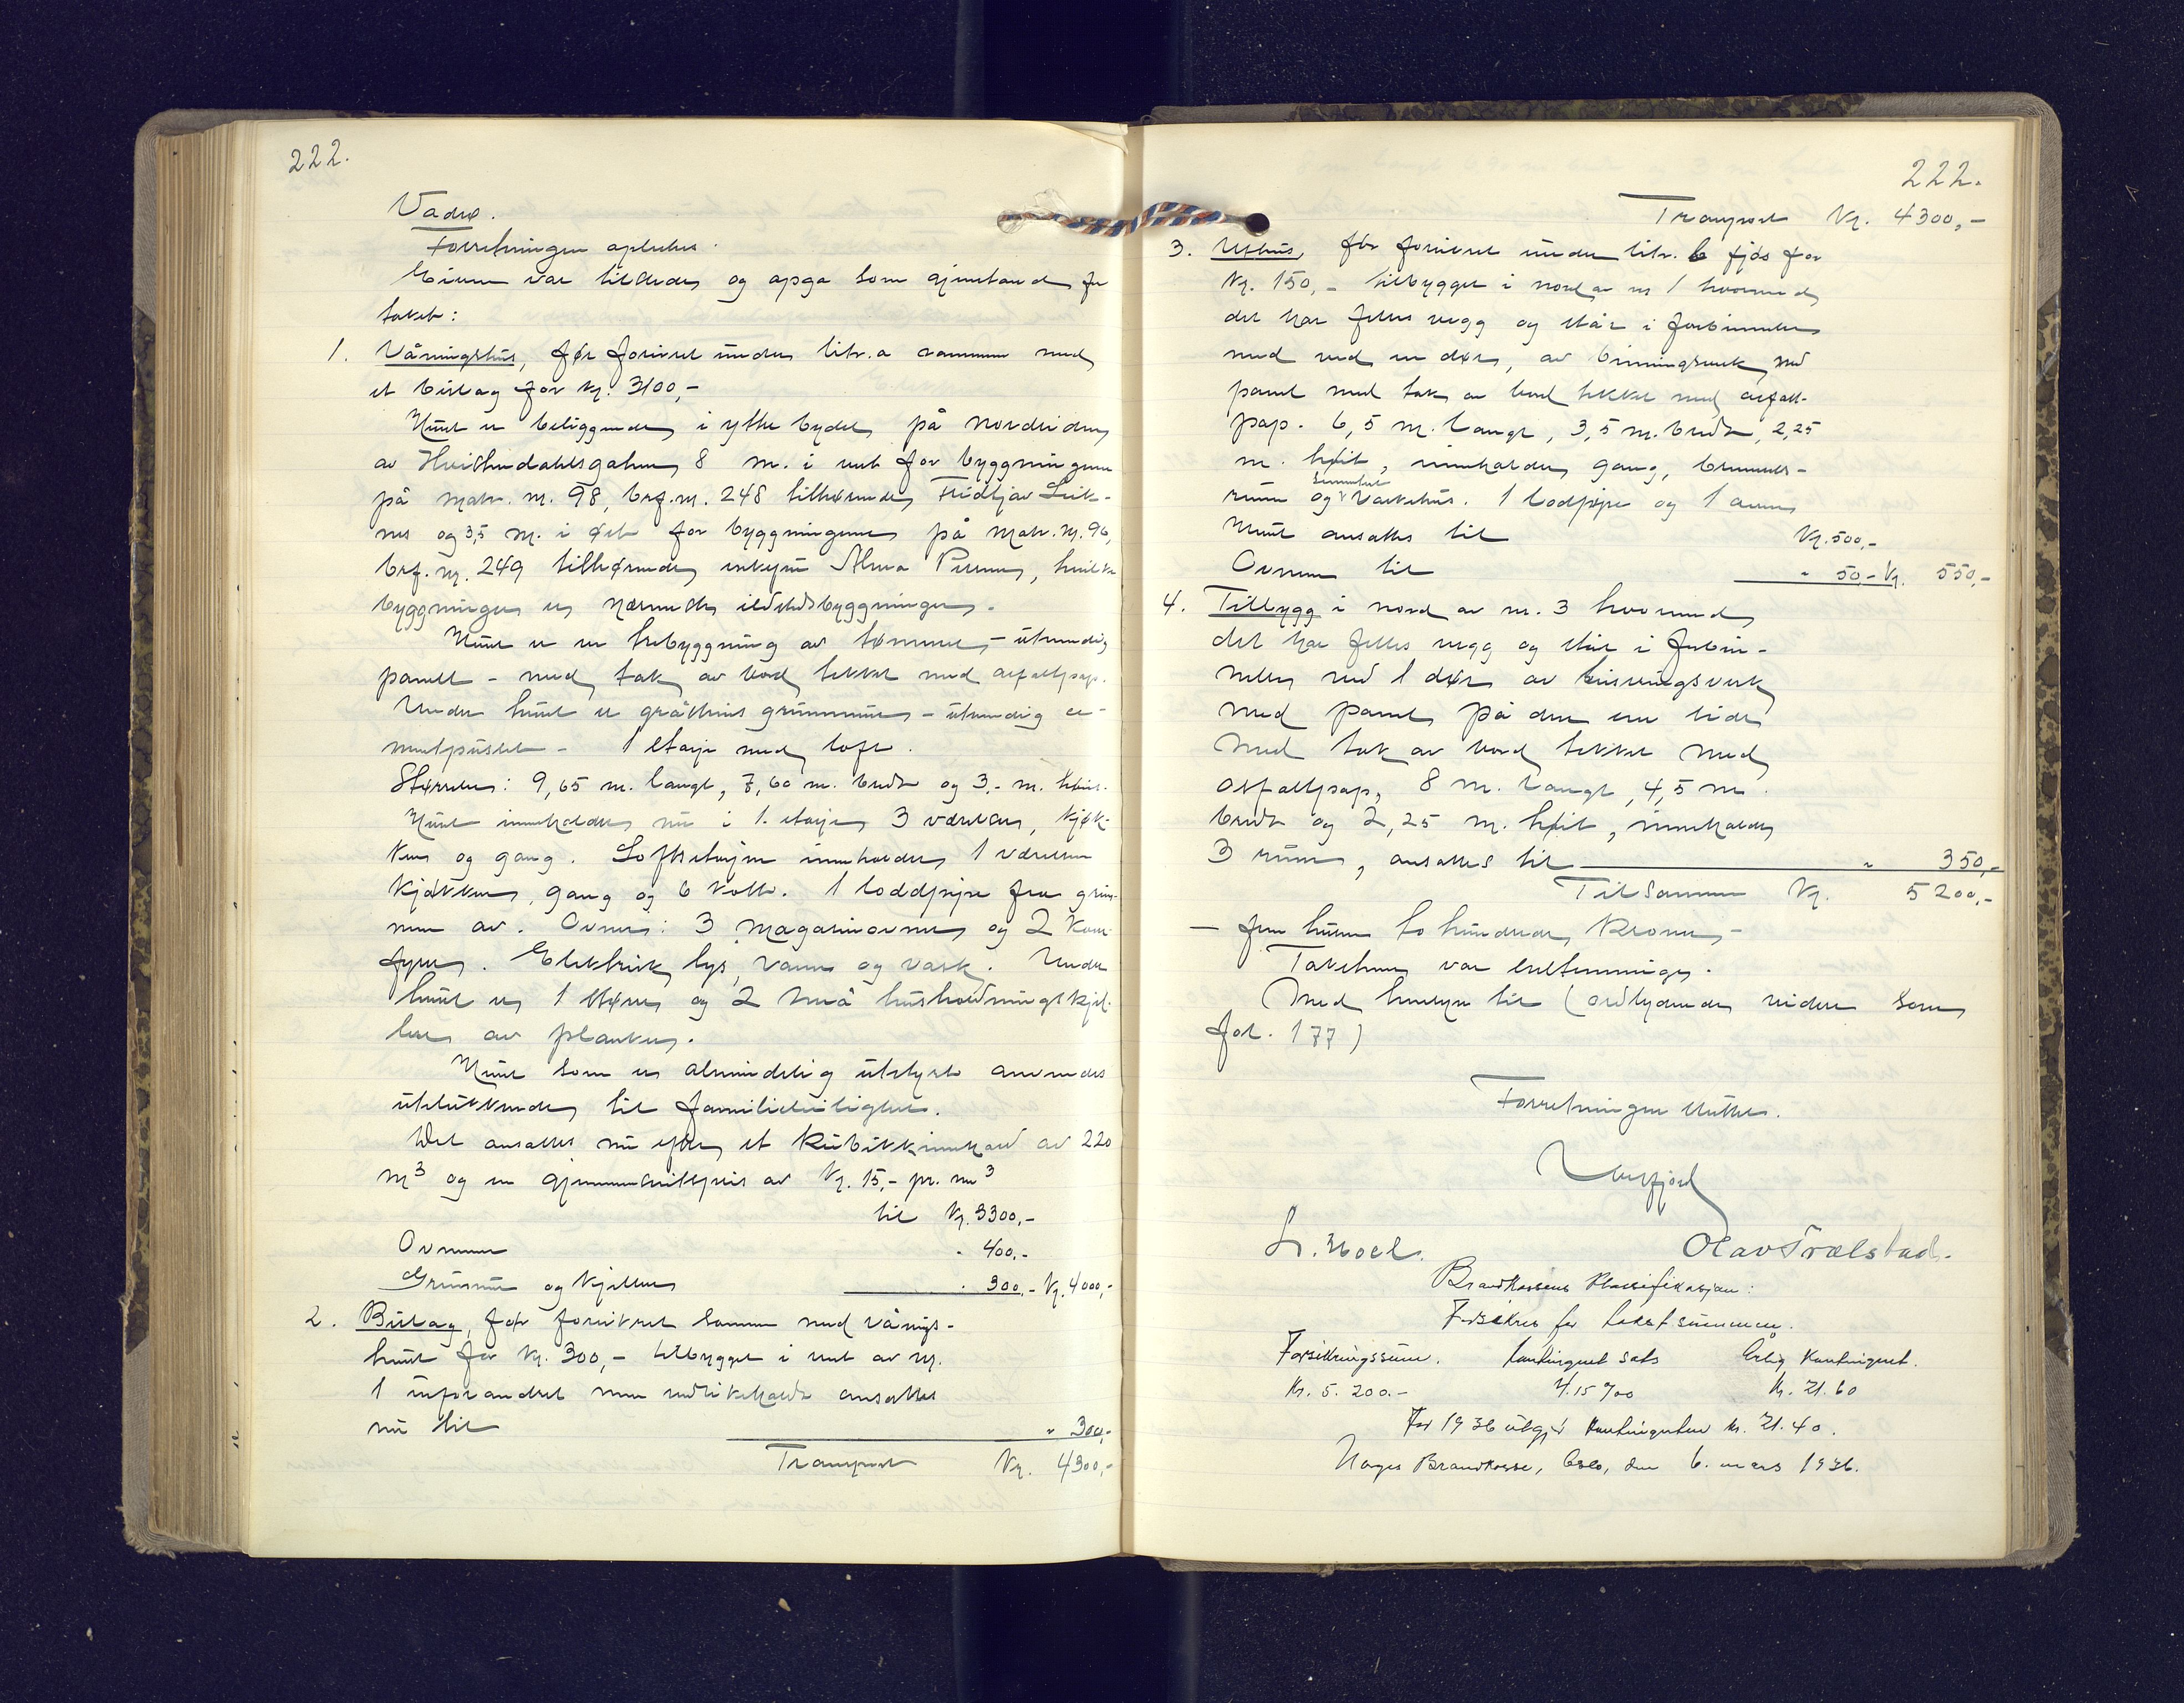 222.
Vadsø.
Forretningen oplestes.
Eieren var tilstede og opga som gjenstand for
takst:
1. Våningshus, før forsikret under litr. a sammen med
et bislag for kr. 3100,-
Huset er beliggende i ytre bydel på nordsiden
av Hvistendahlsgaten, 8 m. i vest for bygningene
på matr. nr. 98, brf. nr. 248 tilhørende Fridtjov Leik-
nes og 3,5 m. i øst for bygningene på matr. nr. 96,
brf. nr. 249 tilhørende enkefru Alma Pirenen, hvilke
bygninger er nærmeste ildstedsbygninger.
Huset er en trebygning av tømmer - utvendig
panelt - med tak av bord tekket med asfaltpap.
Under huset er gråstens grunnmur - utvendig ce-
mentpusset - 1 etasje med loft.
Størrelse: 9,65 m. langt, 7,60 m. bredt og 3.- m. høit.
Huset inneholder nu i 1. etasje 3 værelser, kjøk-
ken og gang. Loftsetasjen inneholder 1 værelse
kjøkken, gang og 6 kott. 1 loddpipe fra grun-
nen av. Ovner: 3 magasinovner og 2 kom-
fyrer. Elektrisk lys, vann og vask. Under
huset er 1 større og 2 små husholdningskjel-
lere av planker.
Huset som er almindelig utstyrt anvendes
utelukkende til familieleilighet.
Det ansettes nu efter et kubikkinnhold av 220
m³ og en gjennemsnittspris av kr. 15,- pr. m³
til kr. 3300,-
Ovnene " 400,-
Grunnmur og kjellere " 300,- kr. 4000,-
2. Bislag, før forsikret sammen med vånings-
huset for kr. 300,- tilbygget i vest av nr.
1 uforandret men vedlikeholdt ansettes
nu til " 300,-
Transport kr. 4300,-
222.
Transport kr. 4300,-
3. Uthus, før forsikret under litr. b fjøs for
kr. 150,- tilbygget i nord av nr 1 hvormed
det har felles vegg og står i forbindelse
med ved en dør, av binningsverk med
panel med tak av bord tekket med asfalt-
pap. 6,5 m. langt, 3,5 m. bredt, 2,25
m. høit, inneholder gang, brensels-
rum og vaskehus. 1 loddpipe og 1 ovn
Huset ansettes til kr. 500,-
Ovnen til " 50,- kr. 550,-
4. Tilbygg i nord av nr. 3 hvormed
det har felles vegg og står i forbin-
delse ved 1 dør av binningsverk
med panel på den ene side
med tak av bord tekket med
asfaltpap, 8 m. langt, 4,5 m.
bredt og 2,25 m. høit, inneholder
3 rum, ansettes til " 350,-
Tilsammen kr. 5200,-
- fem tusen to hundrede kroner -
Taksten var enstemmig.
Med hensyn til (ordlydende videre som
fol. 177)
Forretningen sluttet.
Olav Trælstad.
Brandkassens Klassifikasjon:
Forsikres for takstsummen.
Forsikringssum. Kontingent sats Årlig Kontingent.
Kr. 5.200.- 4.15 ‰ Kr. 21.60
For 1936 utgjør kontingenten kr. 21.40.
Norges Brandkasse, Oslo, den 6. mars 1936.